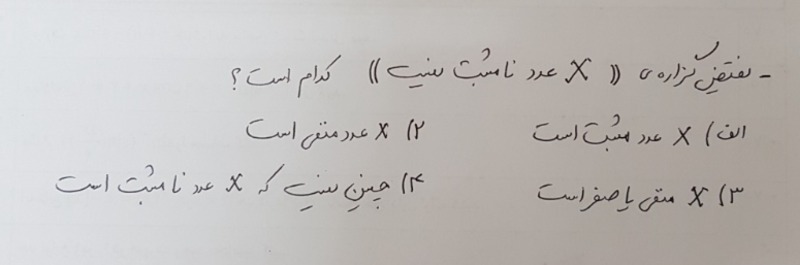 - نقیض گزاره‌ی «X عدد نامثبت نیست» کدام است؟
الف) X عدد مثبت است ۲) X عدد منفی است
۳) X منفی یا صفر است ۴) چنین نیست که X عدد نامثبت است